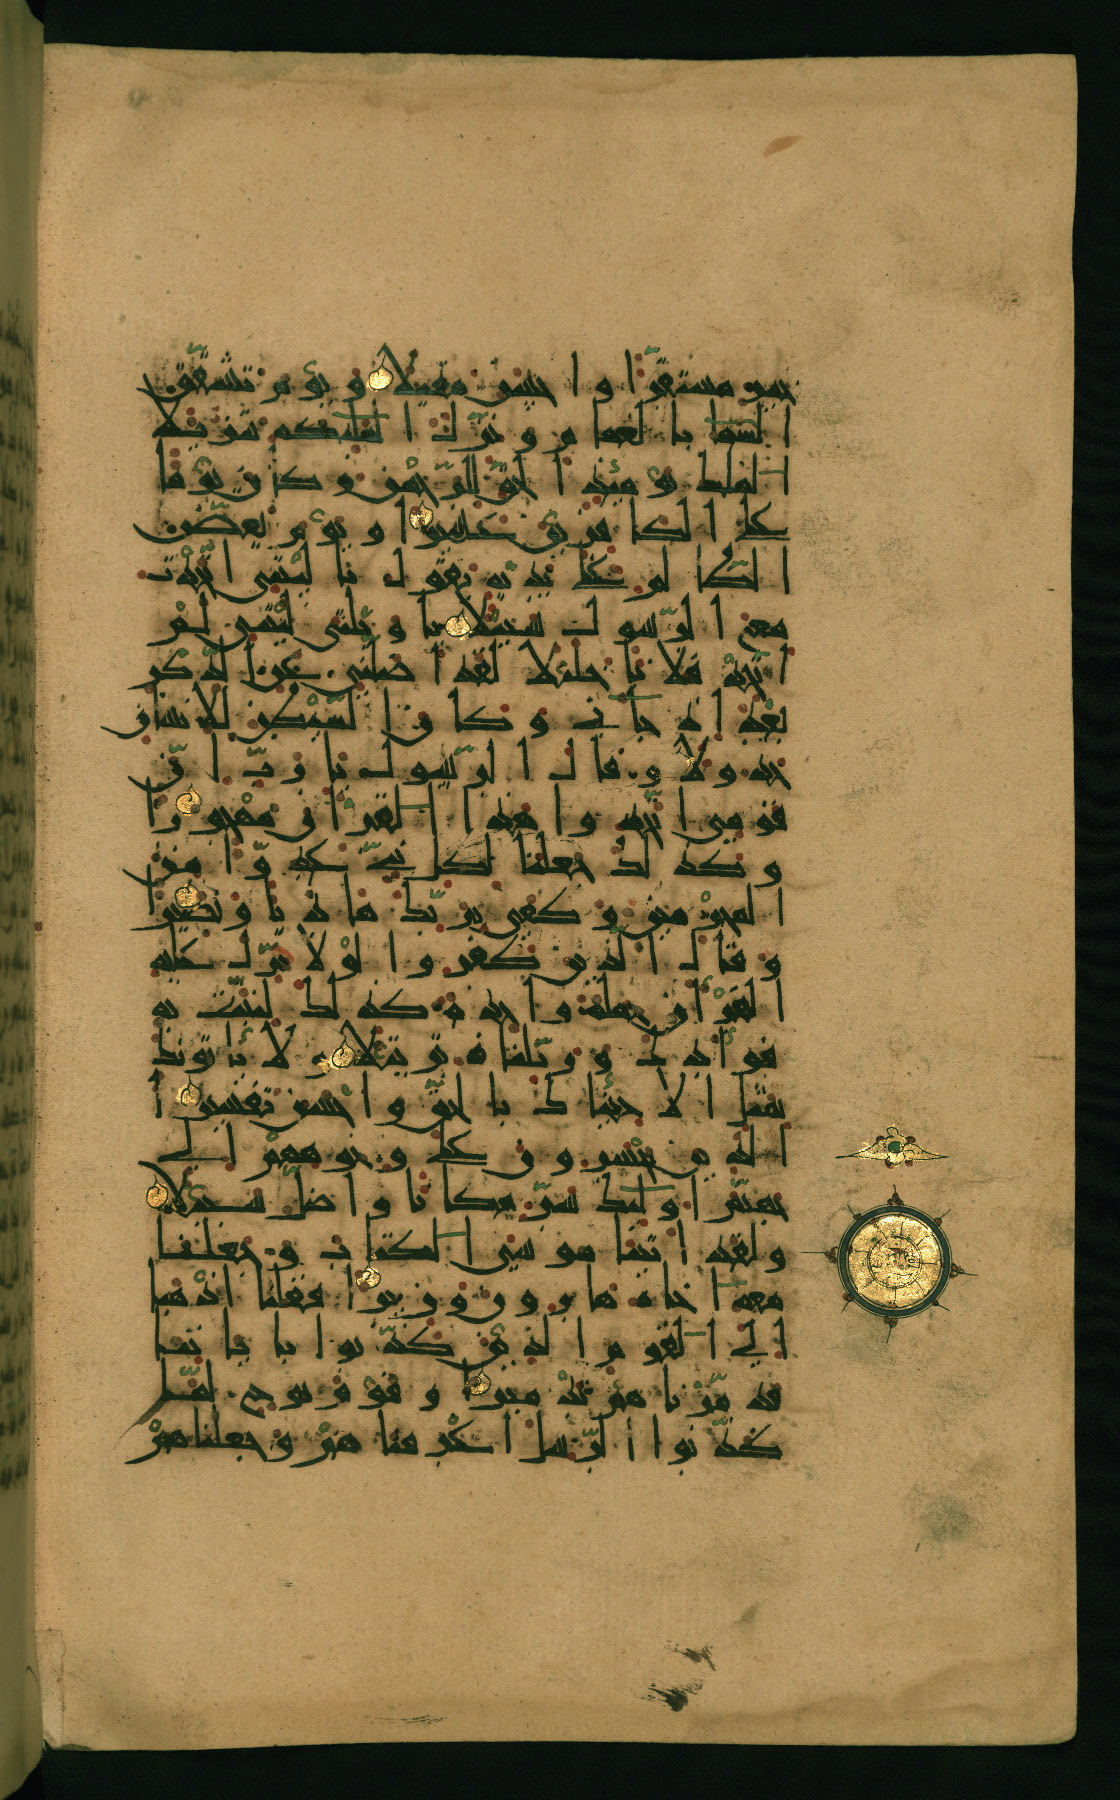 خير مستقرّا و احسن مقيلا و يوم تشقّق
السّما بالغمام و نزّل الملئكة تنزيلا
الملك يومئذ الحقّ للرّحمن و كان يوما
على الكافرين عسيرا و يوم يعضّ
الظّالم على يديه يقول يا ليتني اتّخذت
مع الرّسول سبيلا يا ويلتى ليتني لم
اتّخذ فلانا خليلا لقد اضلني عن الذّكر
بعد اذ جآني و كان الشّيطن للانسان
خذولا و قال الرّسول يا ربّ انّ
قومي اتّخذوا هذا القران مهجورا
و كذلك جعلنا لكل نبيّ عدوّا من
المجرمين و كفى بربّك هاديا و نصيرا
و قال الذين كفروا لولا نزّل عليه
القران جملة واحدة كذلك لنثبّت به
فوادك و رتّلناه ترتيلا و لا ياتونك
بمثل الا جئناك بالحقّ و احسن تفسيرا
الذين يحشرون على وجوههم الى
جهنّم اولئك شرّ مكانا و اضلّ سبيلا
و لقد اتينا موسى الكتاب و جعلنا
معه اخاه هارون وزيرا فقلنا اذهبا
الى القوم الذين كذّبوا باياتنا
فدمّرناهم تدميرا و قوم نوح لمّا
كذّبوا الرّسل اغرقناهم و جعلناهم